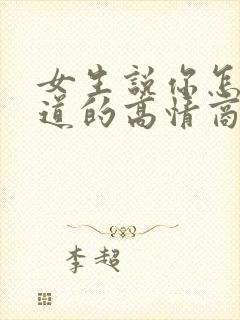 女生說你怎
道的高情商
李超